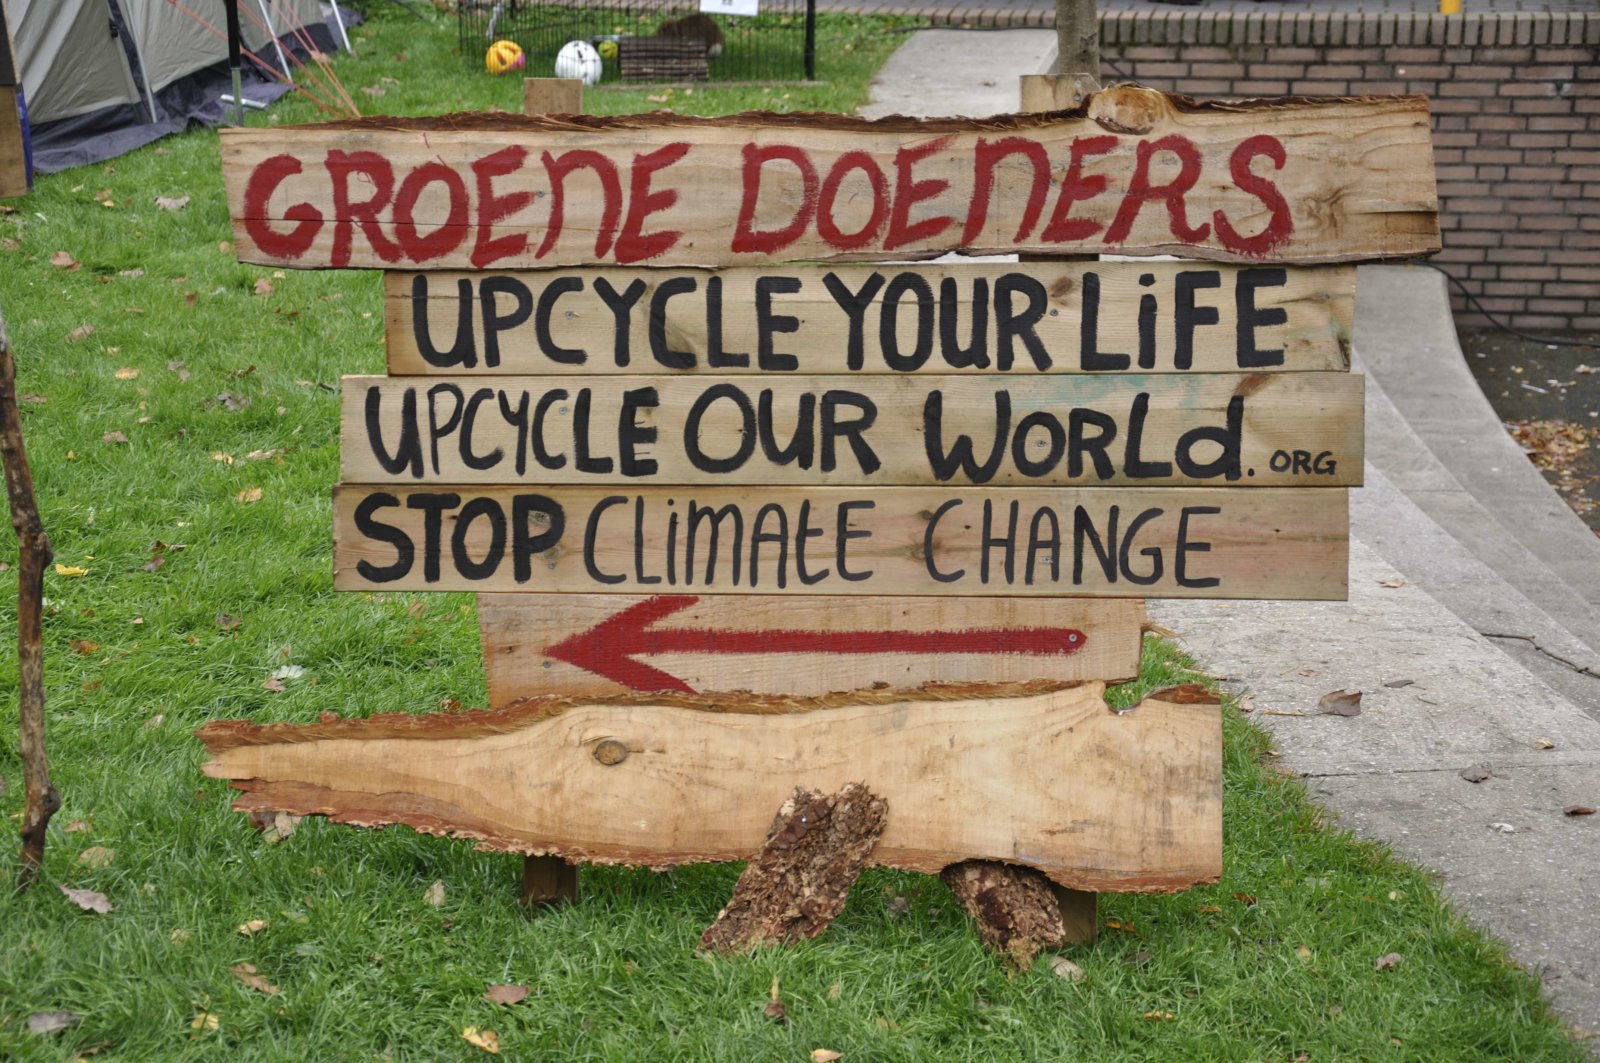 GROENE DOENERS
UPCYCLE YOUR LiFE
UPCYCLE OUR WORLd.ORG
STOP CLiMAtE CHANGE